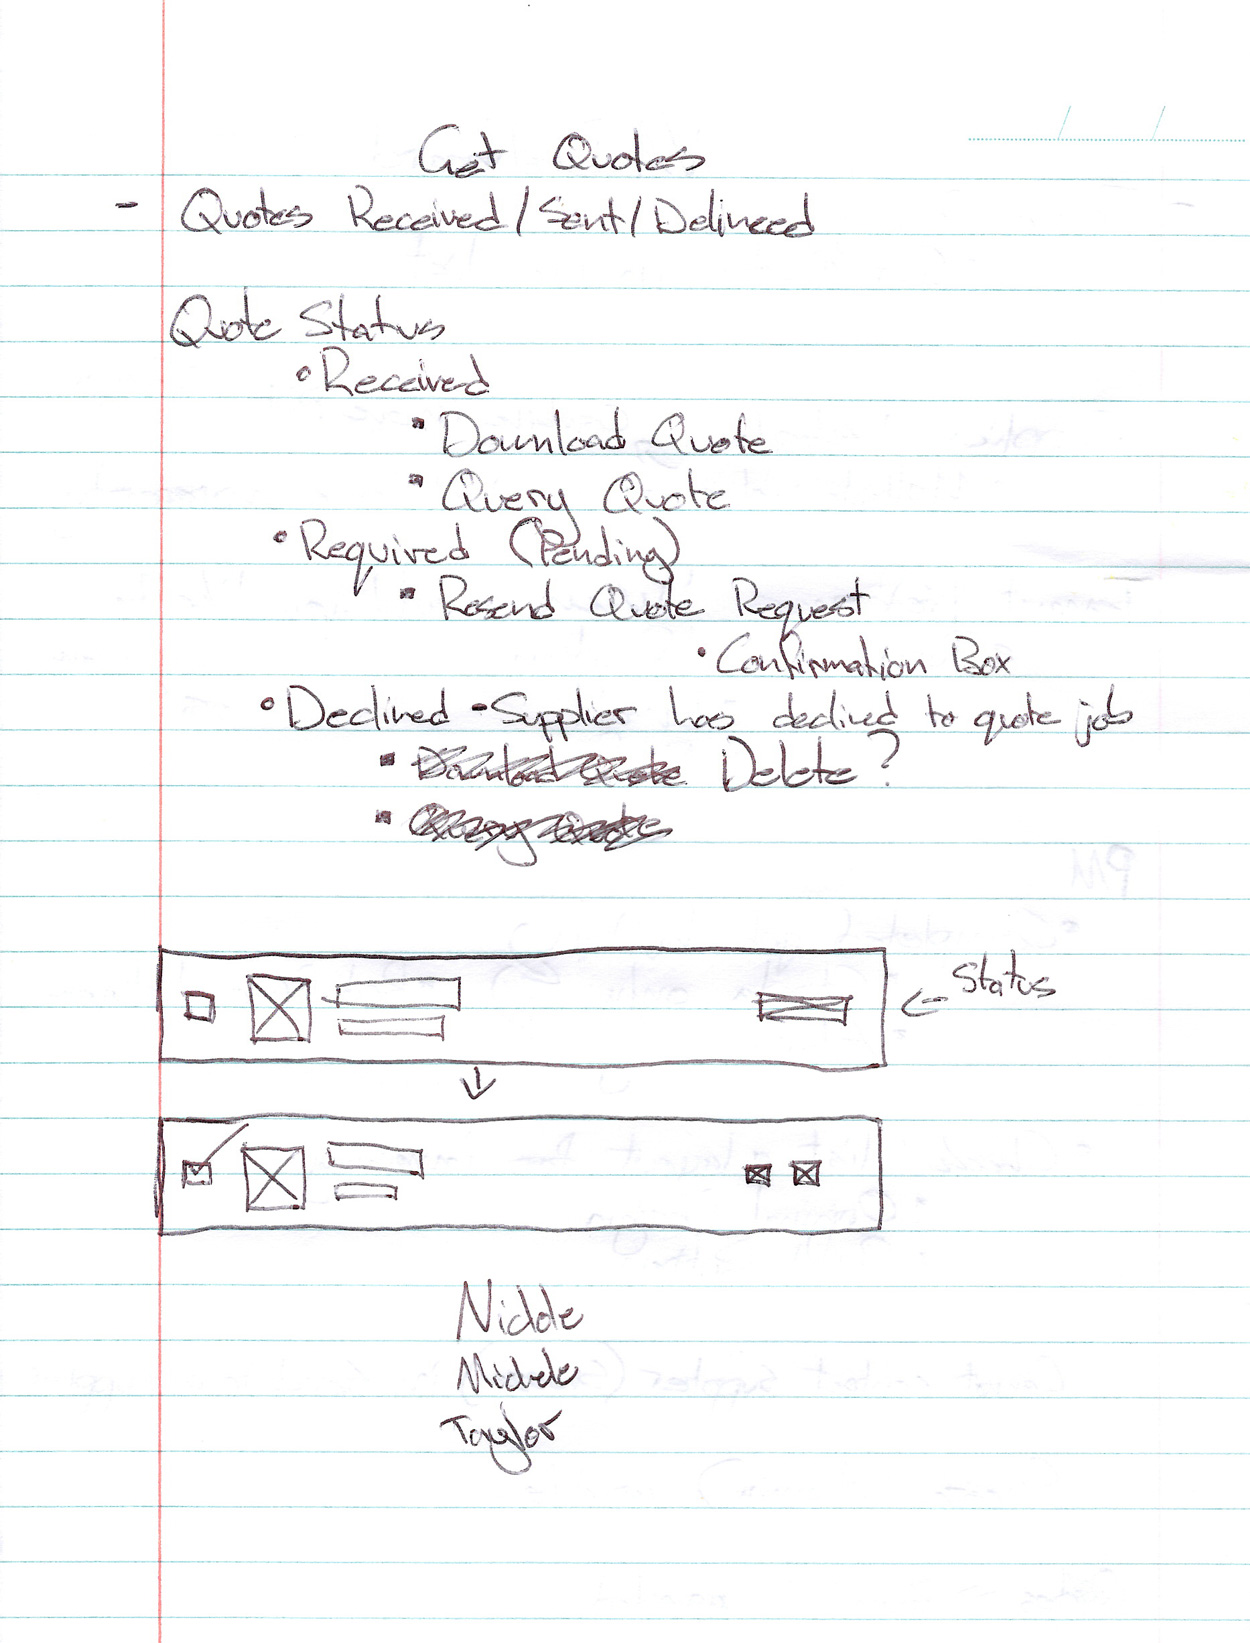 Get Quotes
- Quotes Received/Sent/Delineed
Quote Status
• Received
▪ Download Quote
▪ Query Quote
• Required (Pending)
▪ Resend Quote Request
• Confirmation Box
• Declined - Supplier has declined to quote job
▪ Download Quote Delete?
▪ Query Quote
← Status
Nicole
Michele
Taylor